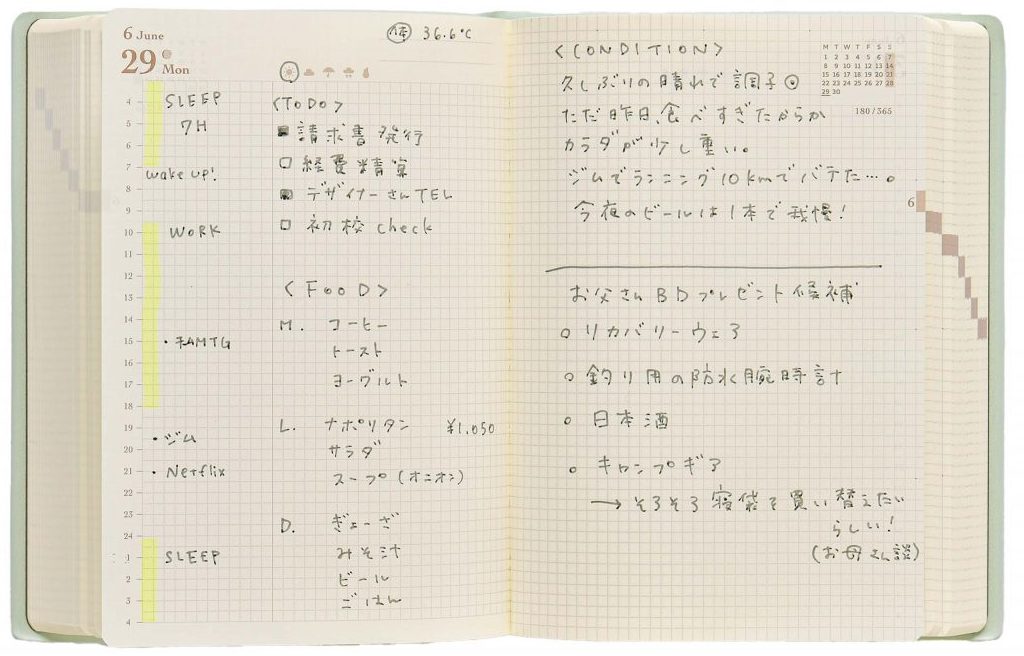 6 June
29 Mon
体 36.6℃
4
SLEEP
5
7H
6
7
wake up!
8
9
10
WORK
11
12
13
14
15
16
17
18
19
・ジム
20
21
・Netflix
22
23
24
1
SLEEP
2
3
4
<ToDo>
請求書発行
経費精算
デザイナーさんTEL
初校check
<FOOD>
M. コーヒー
トースト
ヨーグルト
L. ナポリタン ¥1,050
サラダ
スープ(オニオン)
D. ぎょーざ
みそ汁
ビール
ごはん
<CONDITION>
久しぶりの晴れで調子◎
ただ昨日、食べすぎたからか
カラダが少し重い。
ジムでランニング10kmでバテた…。
今夜のビールは1本で我慢!
M T W T F S S
1 2 3 4 5 6 7
8 9 10 11 12 13 14
15 16 17 18 19 20 21
22 23 24 25 26 27 28
29 30
180/365
6
お父さんBDプレゼント候補
○ リカバリーウェア
○ 釣り用の防水腕時計
○ 日本酒
○ キャンプギア
→ そろそろ寝袋を買い替えたい
らしい!
(お母さん談)